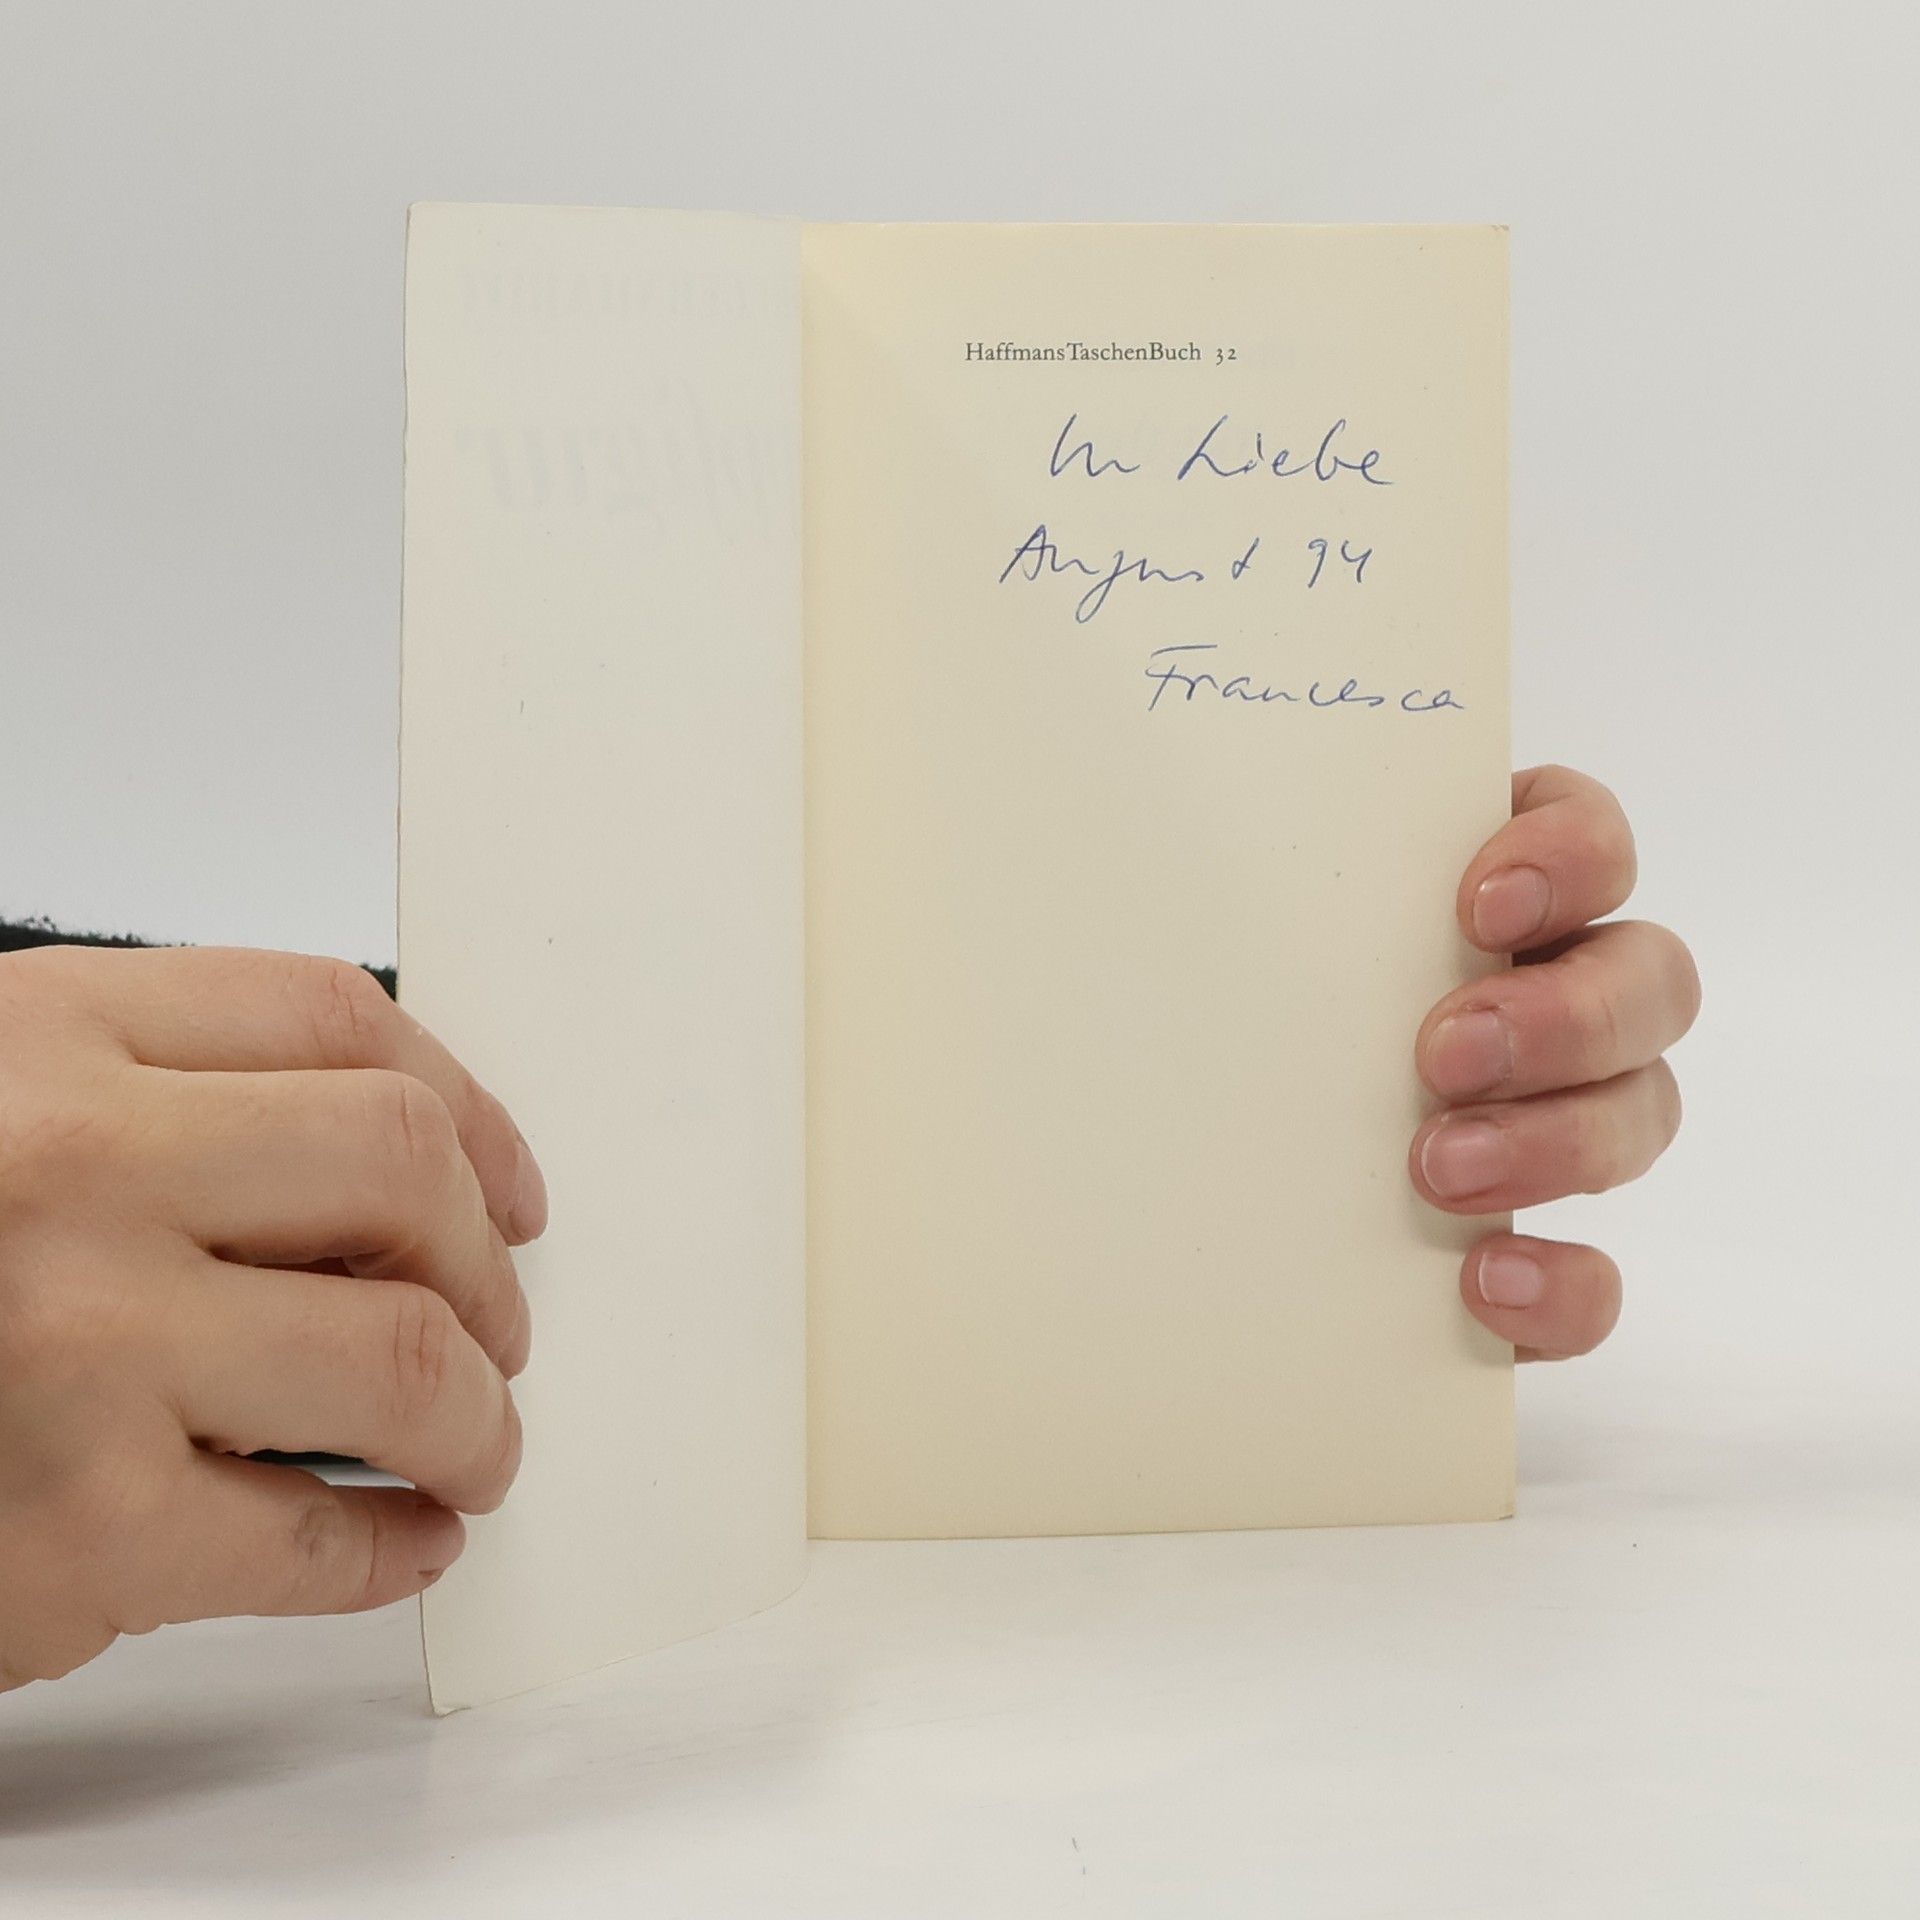 HaffmansTaschenBuch 32
In Liebe
August 94
Francesca